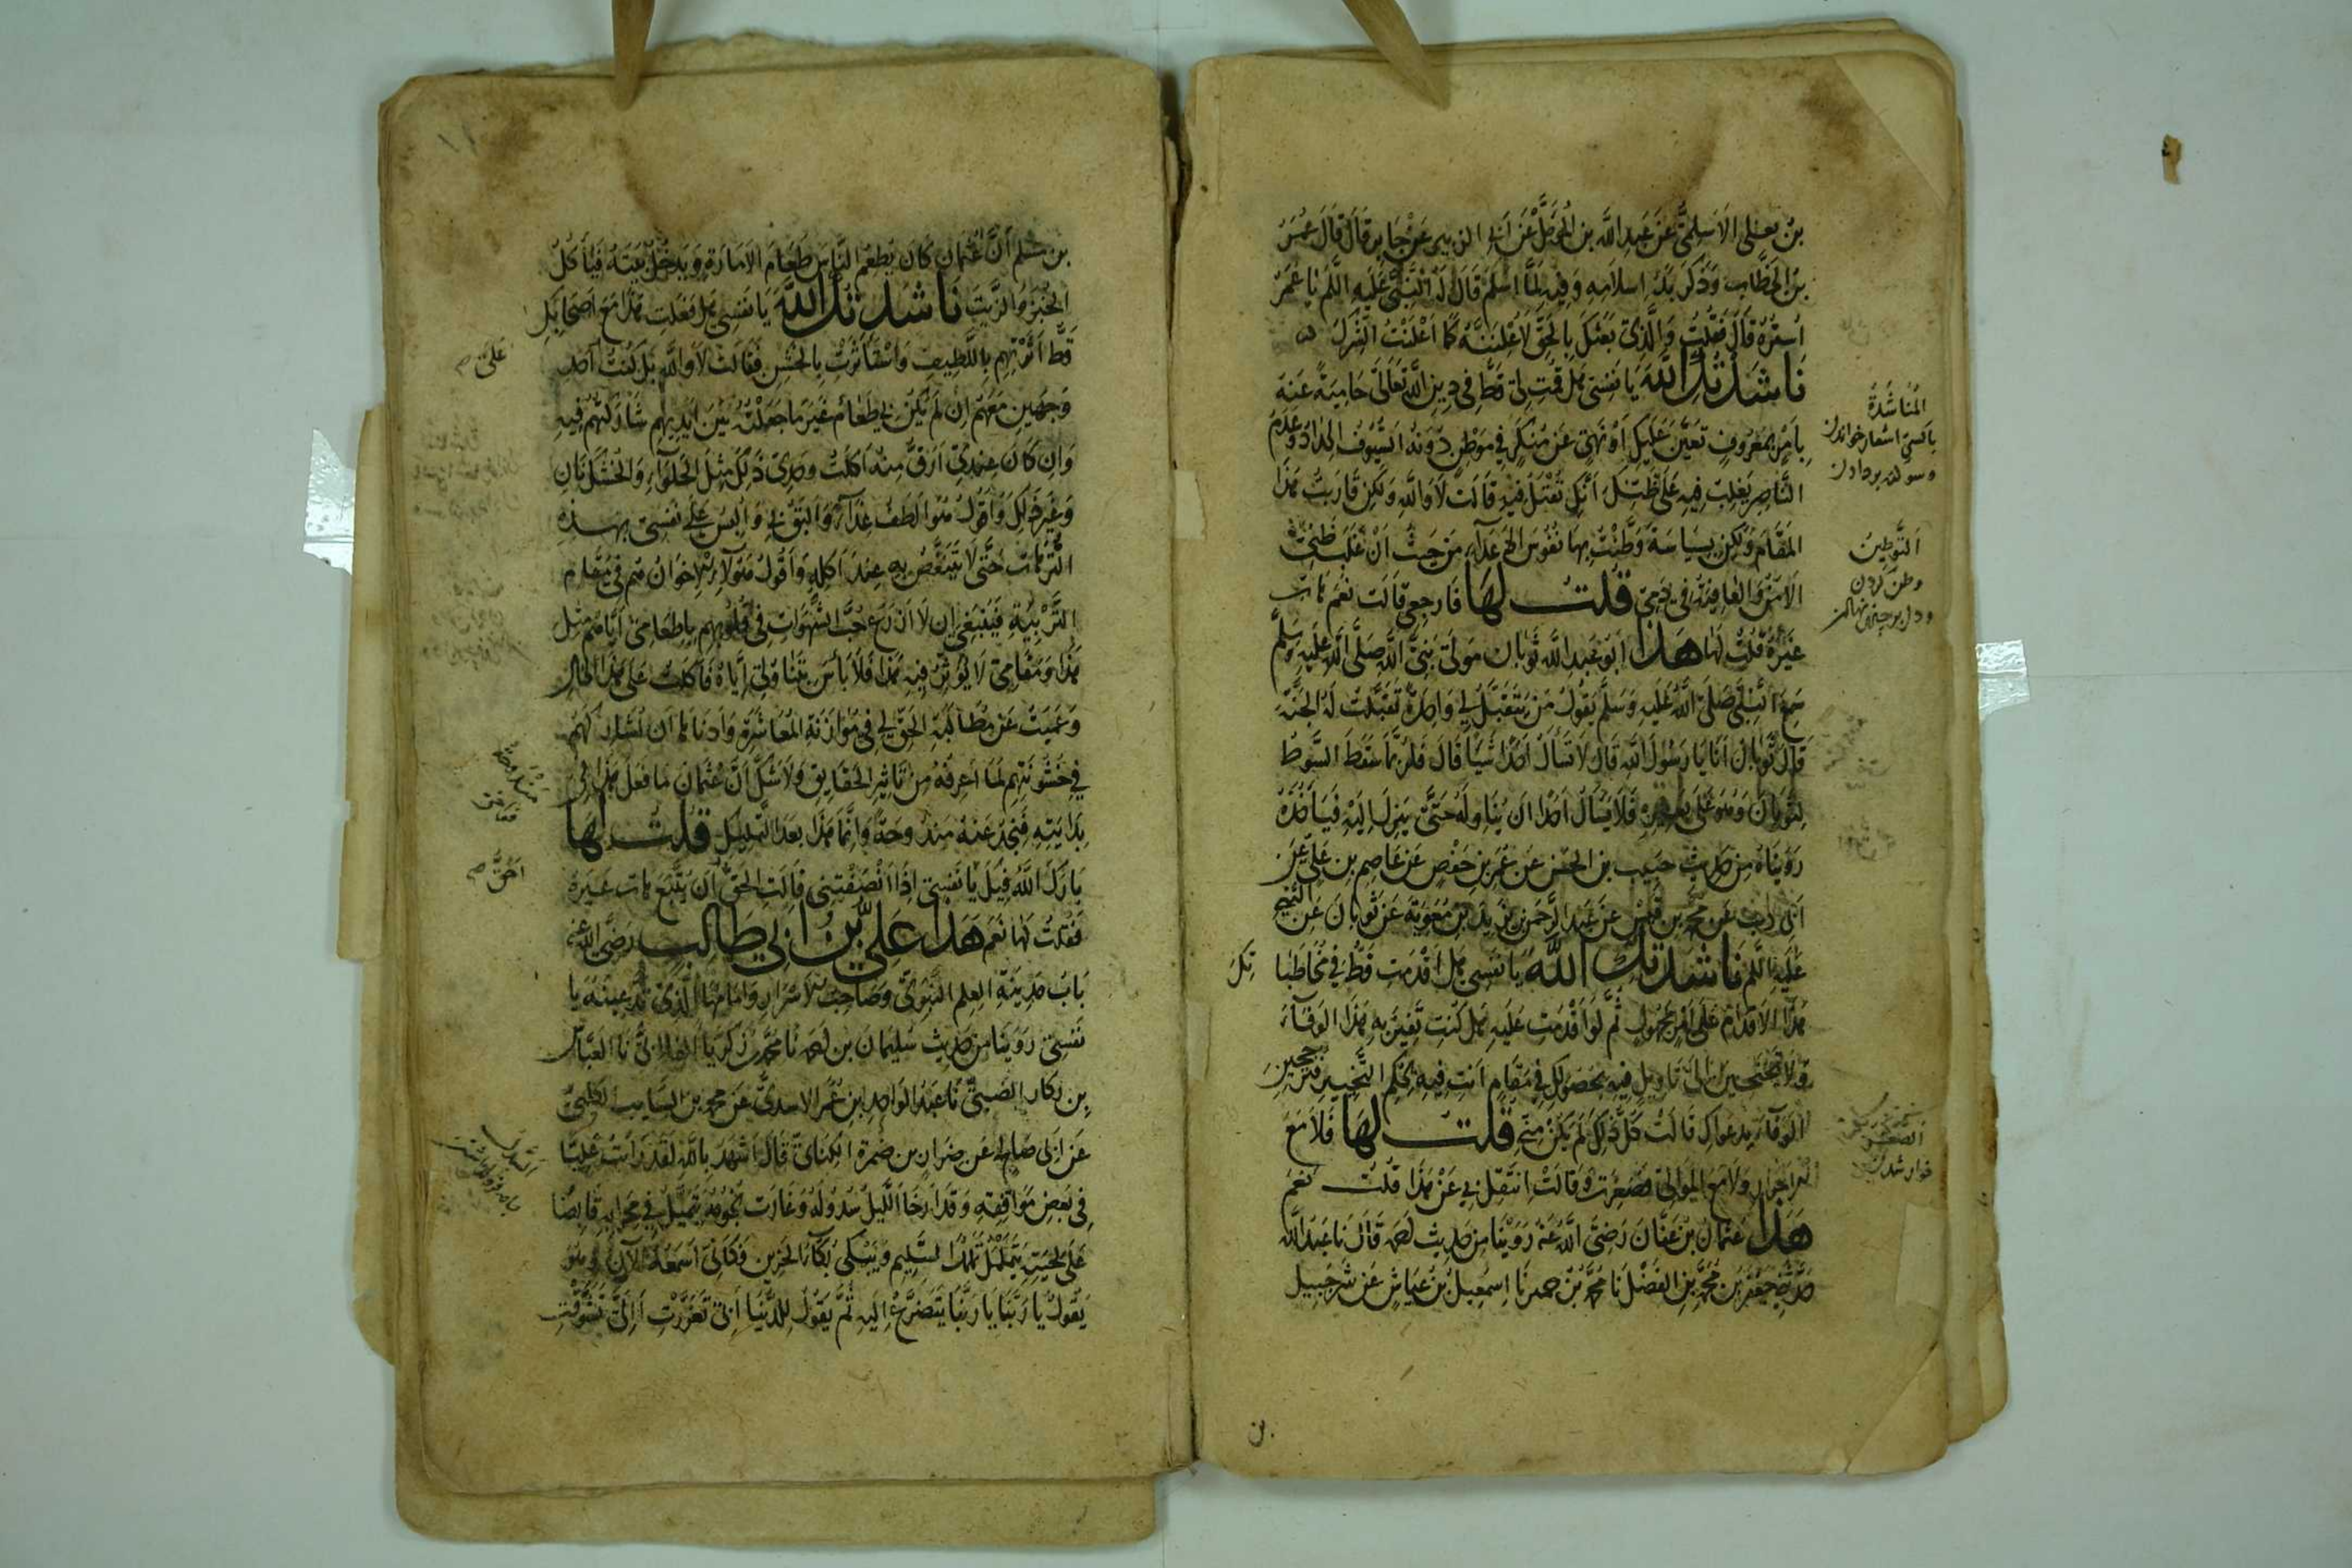 بن يعلى الاسلمي عن عبد الله بن المؤمل عن ابي الزبير عن جابر قال قال عمر
بن الخطاب وذكر بدء اسلامه وفيه لما اسلم قال له النبي عليه السلم يا عمر
استره قال فقلت والذي بعثك بالحق لاعلننه كما اعلنت الشرك
ناشدتك الله يا نفسي هل قمت لي قط في دين الله تعالى حامية عنه
بامر بمعروف تعين عليك او نهي عن منكر في موطن دونه السيوف الحداد وعدم
الناصر يغلب فيه على ظنك انك تقتل فيه قالت لا والله ولكن قاربت هذا
المقام ولكن بسياسة وطنت بها نفوس الاعداء من حيث ان غلب ظني
الامن والعافية في دمي قلت لها فارجعي قالت نعم هات
غيره قلت لها هذا ابو عبد الله ثوبان مولى نبي الله صلى الله عليه وسلم
سمع النبي صلى الله عليه وسلم يقول من يتقبل لي واحدة تقبلت له الجنة
قال ثوبان انا يا رسول الله قال لا تسأل احدا شيئا قال فلربما سقط السوط
لثوبان وهو على بعيره فلا يسأل احدا ان يناوله حتى ينزل اليه فيأخذه
رويناه من حديث حبيب بن الحسن عن عمر بن حفص عن عاصم بن علي عن
ابي ذئب عن محمد بن قيس عن عبد الرحمن بن يزيد بن معوية عن ثوبان عن النبي
عليه السلم ناشدتك الله يا نفسي هل اقدمت قط في مخاطبا تك
هذا الاقدام على امر مجهول ثم لو اقدمت عليه هل كنت تفين به هذا الوفاء
ولا تجنحين الى تاويل فيه بحصولك في مقام انت فيه بحكم التخيير فترجحين
الوفاء بدعواك قالت كل ذلك لم يكن مني قلت لها فلا مع
الاحرار ولا مع الموالي فصغرت وقالت انتقل بي عن هذا قلت نعم
هذا عثمان بن عفان رضي الله عنه روينا من حديث احمد قال نا عبد الله
حدثني جعفر بن محمد بن الفضل نا محمد بن حمير نا اسمعيل بن عياش عن شرحبيل
المناشدة
باكسي اشعار خواندن
وسوكند بر دادن
التوطين
وطن كردن
ودل بر چيزى نهادن
خوار شدن
بن
بن مسلم ان عثمان كان يطعم الناس طعام الامارة ويدخل بيته فيأكل
الخبز والزيت ناشدتك الله يا نفسي هل فعلت هذا مع اصحابك
قط اثرتهم باللطيف واستأثرت بالخشن فقالت لا والله بل كنت احد
وجهين معهم ان لم يكن لي طعام غير ما جعلته بين ايديهم شاركتهم فيه
وان كان عندي ارق منه اكلت وحدي ذلك مثل الحلواء والخشكنان
وغير ذلك واقول هو الطف غذاء واليق بي والبس على نفسي بهذه
الترهات حتى لا يتنغص به عند اكله واقول هؤلاء الاخوان هم في مقام
التربية فينبغي ان لا ازرع حب الشهوات في قلوبهم باطعامي اياهم مثل
هذا ومقامي لا يؤثر فيه هذا فلا باس بتناولي اياه فاكلت على هذا الحال
وعميت عن مطالبة الحق لي في موازنة المعاشرة وادناها ان نشاركهم
في خشونتهم لما اعرفه من تاثير الحقايق ولا شك ان عثمان ما فعل هذا في
بدايته فنجد عنه مندوحة وانما هذا بعد التمليك قلت لها
بارك الله فيك يا نفسي اذا انصفتني قالت الحق ان يتبع هات غيره
فقلت لها نعم هذا علي بن ابي طالب رضي الله عنه
باب مدينة العلم النبوي وصاحب الاسرار وامامها الذي تدعينه يا
نفسي روينا من حديث سليمان بن احمد نا محمد زكريا الغلابي نا العباس
بن بكار الضبي نا عبد الواحد ابن عمر الاسدي عن محمد بن السايب الكلبي
عن ابي صالح عن ضرار بن ضمرة الكناني قال اشهد بالله لقد رأيت عليا
في بعض مواقفه وقد ارخا الليل سدوله وغارت نجومه يتميل في محرابه قابضا
على لحيته يتململ تململ السليم ويبكي بكاء الحزين فكاني اسمعه الآن وهو
يقول يا ربنا يا ربنا يتضرع اليه ثم يقول للدنيا ابي تعرضت ام الي تشوقت
على
مندوحة
احق